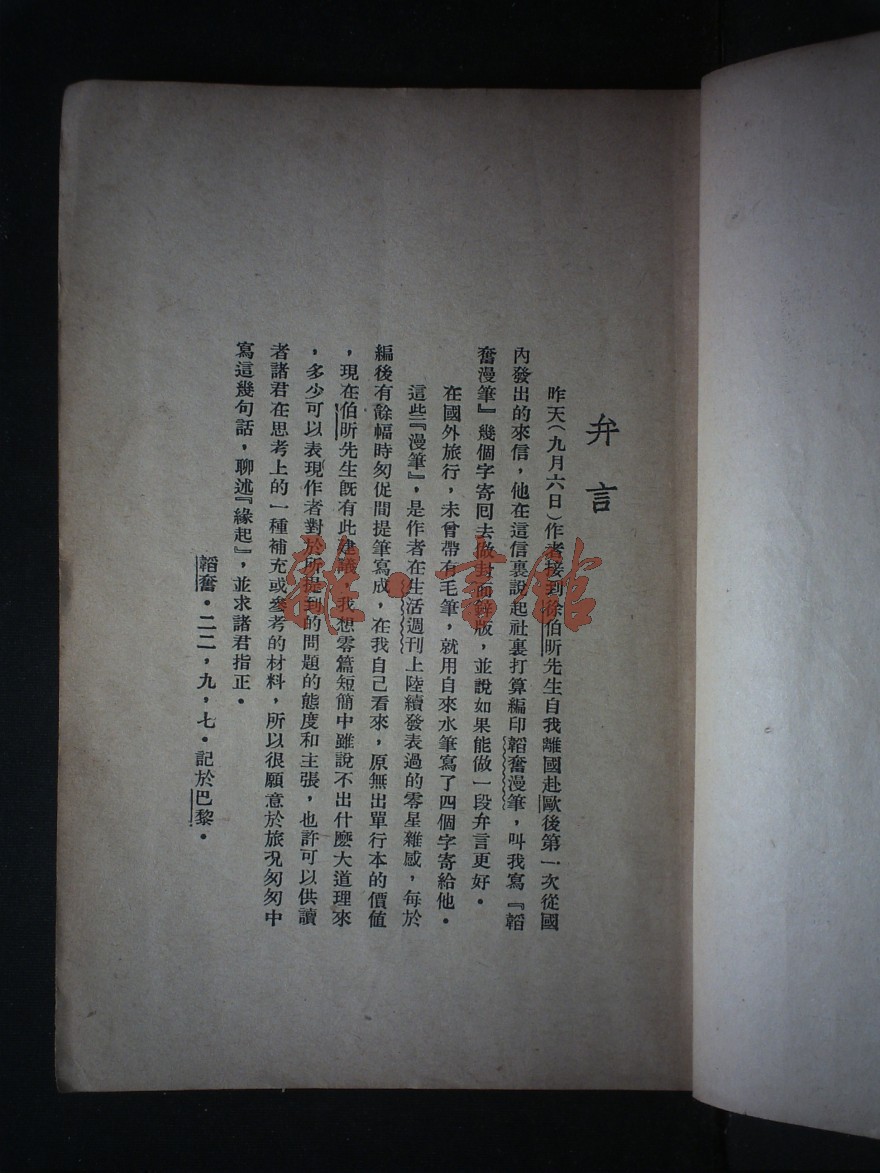 弁言
昨天(九月六日)作者接到徐伯昕先生自我離國赴歐後第一次從國
內發出的來信，他在這信裏說起社裏打算編印韜奮漫筆，叫我寫『韜
奮漫筆』幾個字寄回去做封面鋅版，並說如果能做一段弁言更好。
在國外旅行，未曾帶有毛筆，就用自來水筆寫了四個字寄給他。
這些『漫筆』，是作者在生活週刊上陸續發表過的零星雜感，每於
編後有餘幅時匆促間提筆寫成，在我自己看來，原無出單行本的價值
，現在伯昕先生既有此建議，我想零篇短簡中雖說不出什麽大道理來
，多少可以表現作者對於所提到的問題的態度和主張，也許可以供讀
者諸君在思考上的一種補充或參考的材料，所以很願意於旅況匆匆中
寫這幾句話，聊述『緣起』，並求諸君指正。
韜奮。二二，九，七。記於巴黎。
雜·書館